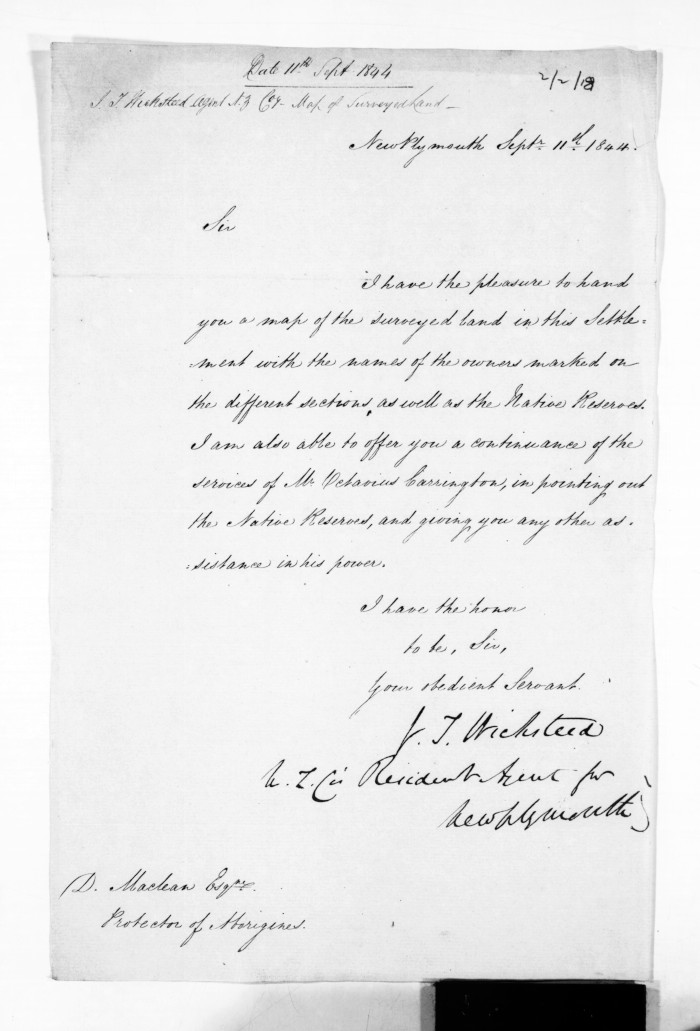 Date 11th Sept 1844
2/2/18
J. T Wicksteed Agent N.Z Coy- Map of Surveyed Land -
New Plymouth Septr. 11th. 1844.
Sir
I have the pleasure to hand
you a map of the surveyed land in this Settle=
ment with the names of the owners marked on
the different sections, as well as the Native Reserves.
I am also able to offer you a continuance of the
services of Mr. Octavius Carrington, in pointing out
the Native Reserves, and giving you any other as.
=sistance in his power.
I have the honor
to be, Sir,
Your obedient Servant.
J. T. Wicksteed
N. Z. Co's Resident Agent for
New Plymouth
D. Maclean Esqre.
Protector of Aborigines.